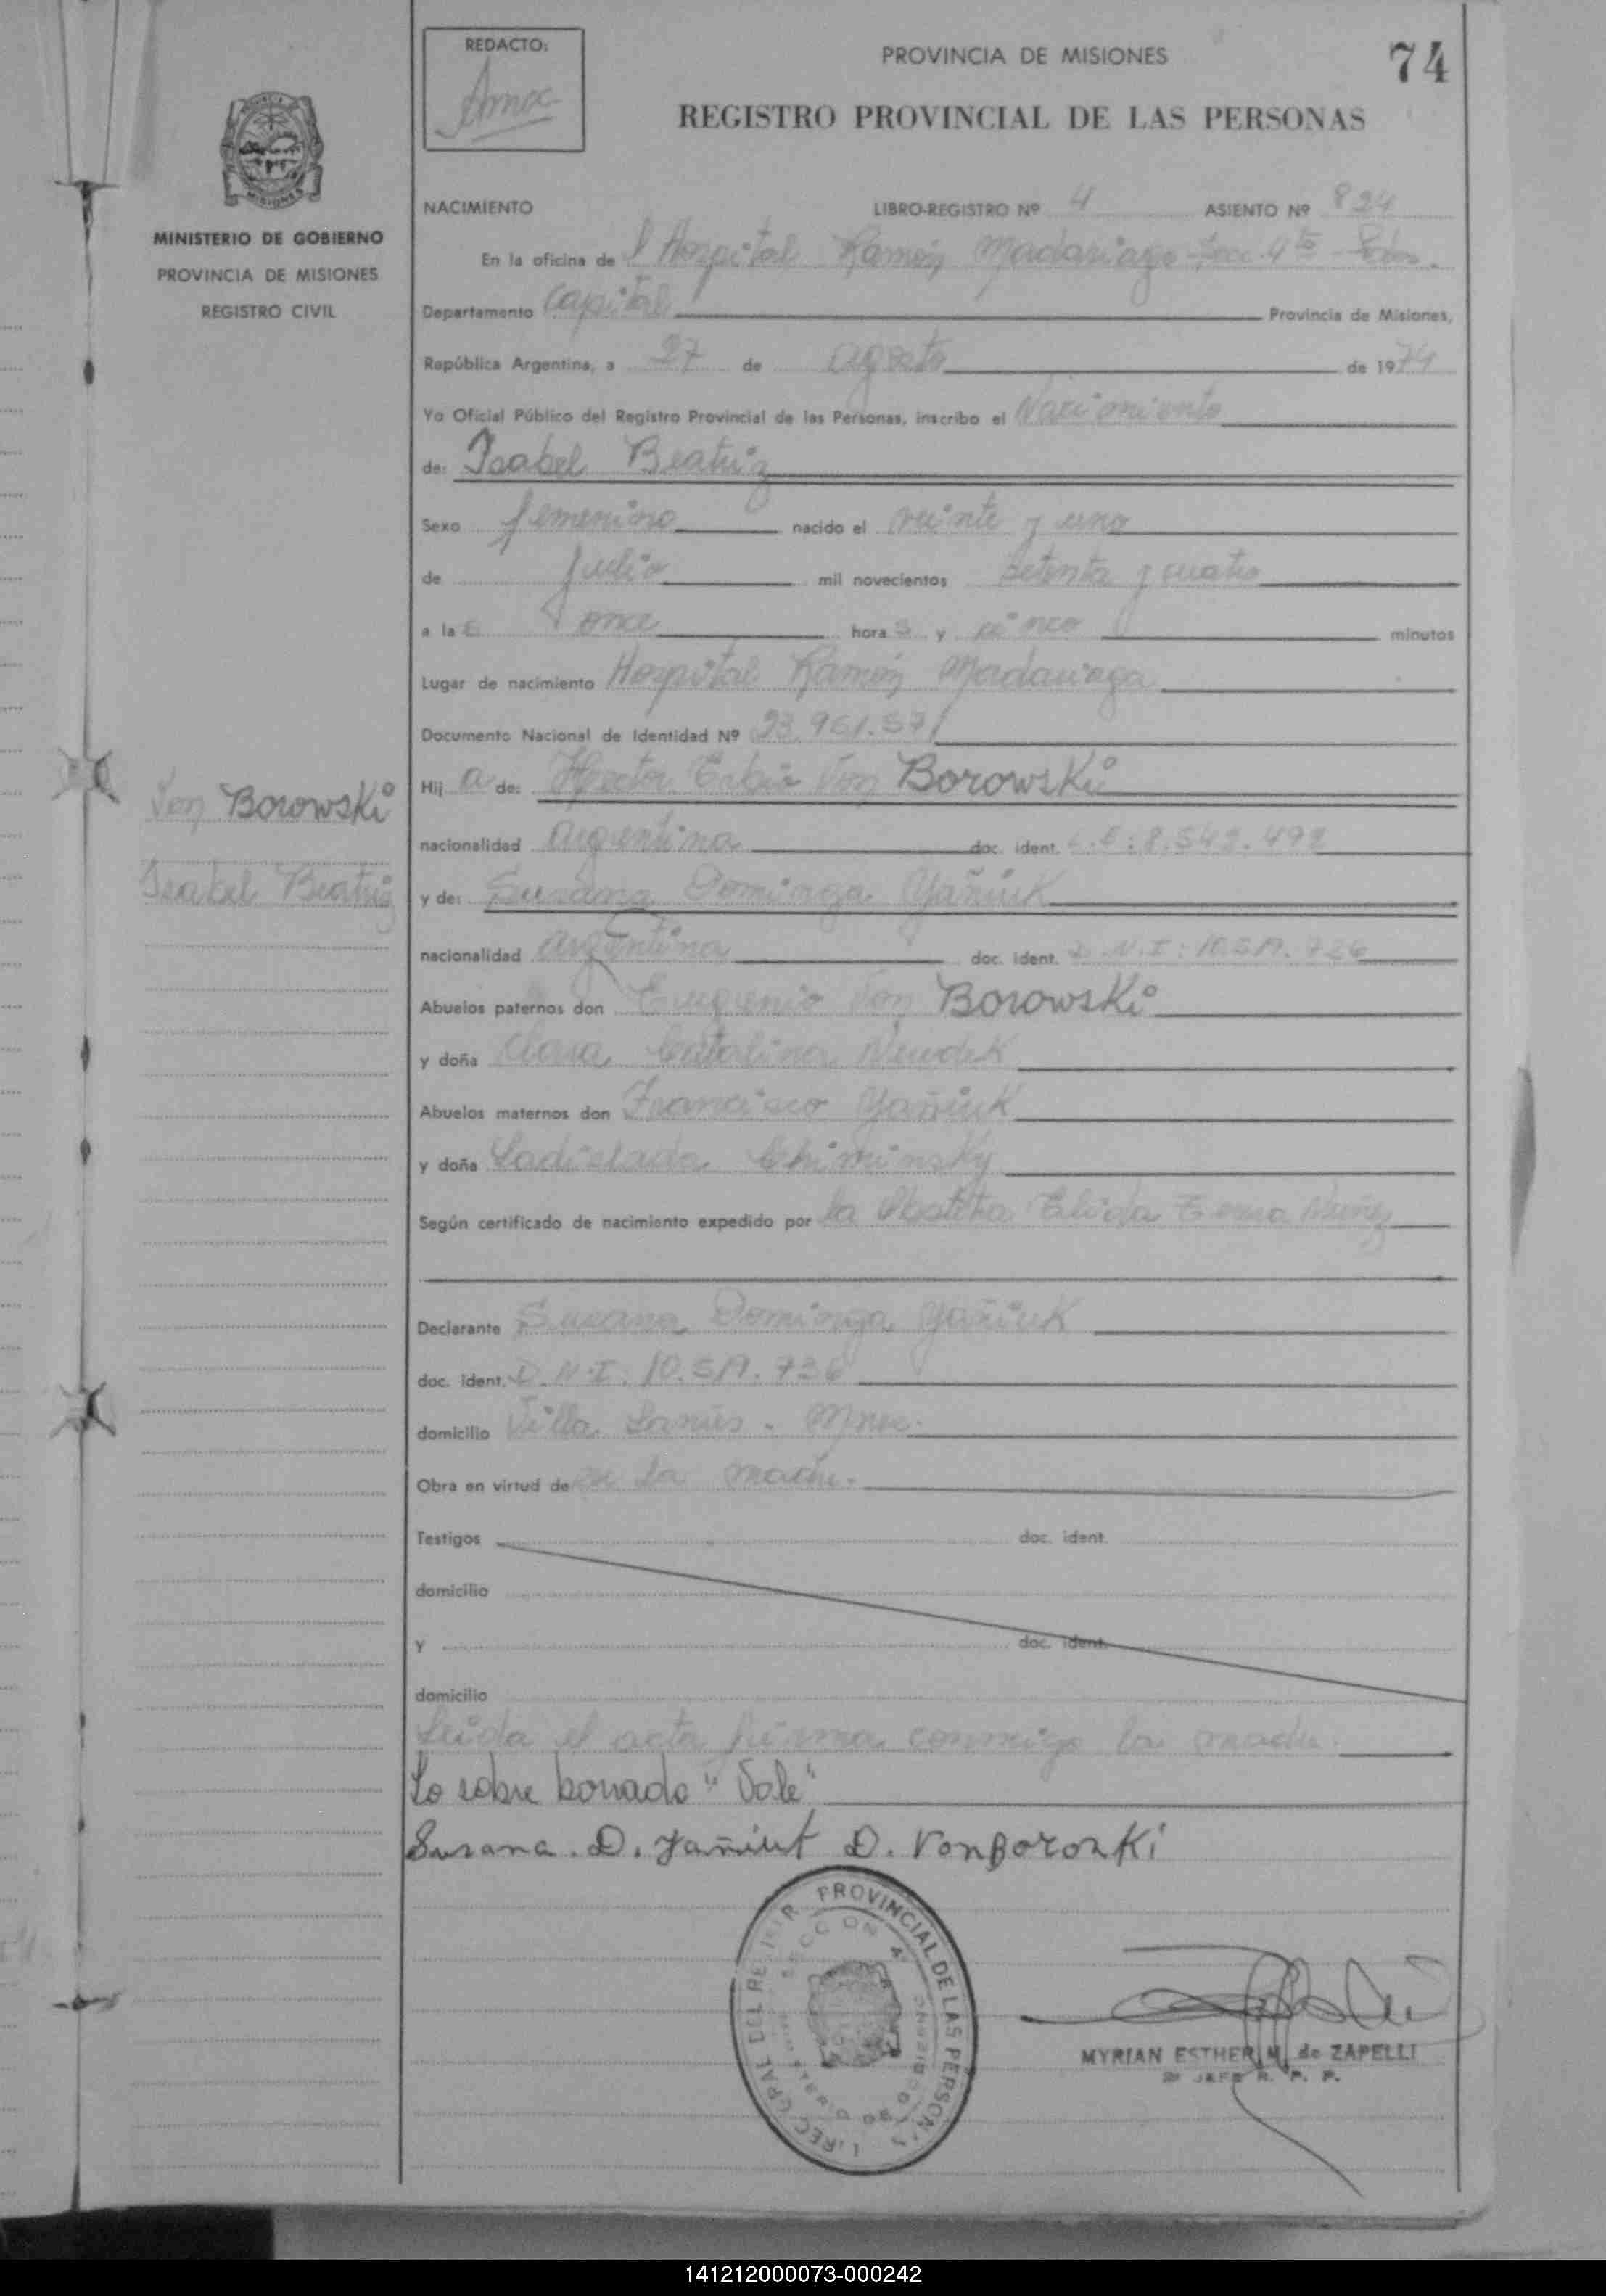 REDACTO:
PROVINCIA DE MISIONES
74
REGISTRO PROVINCIAL DE LAS PERSONAS
MINISTERIO DE GOBIERNO
PROVINCIA DE MISIONES
REGISTRO CIVIL
NACIMIENTO LIBRO-REGISTRO Nº 4 ASIENTO Nº 824
En la oficina de l Hospital Ramón Madariaga Secc. 4ta - Pdas.
Departamento Capital Provincia de Misiones,
República Argentina, a 27 de agosto de 1974
Yo Oficial Público del Registro Provincial de las Personas, inscribo el Nacimiento
de: Isabel Beatriz
Sexo femenino nacido el veinte y uno
de julio mil novecientos setenta y cuatro
a las once horas y cinco minutos
Lugar de nacimiento Hospital Ramón Madariaga
Documento Nacional de Identidad Nº 23.961.571
Von Borowski
Isabel Beatriz
Hija de: Hector Von Borowski
nacionalidad argentina doc. ident. L.E: 8.542.492
y de: Susana Dominga Yañiuk
nacionalidad argentina doc. ident. D.N.I:
Abuelos paternos don Eugenio Von Borowski
y doña Clara Catalina
Abuelos maternos don Francisco Yañiuk
y doña Ladislada Chiminsky
Según certificado de nacimiento expedido por la Obstetra Elida
Declarante Susana Dominga Yañiuk
doc. ident. D.N.I:
domicilio Villa Lanús - Mnes.
Obra en virtud de ser la madre.
Testigos doc. ident.
domicilio
y doc. ident.
domicilio
Leida el acta firma conmigo la madre.
Lo sobre borrado "Vale"
Susana. D. Yañiuk D. VonBoroski
DIREC. GRAL DEL REGISTR. PROVINCIAL DE LAS PERSONAS
SECCION 4ª
MINISTERIO DE GOBIERNO
MYRIAN ESTHER M. de ZAPELLI
JEFE R. P. P.
141212000073-000242